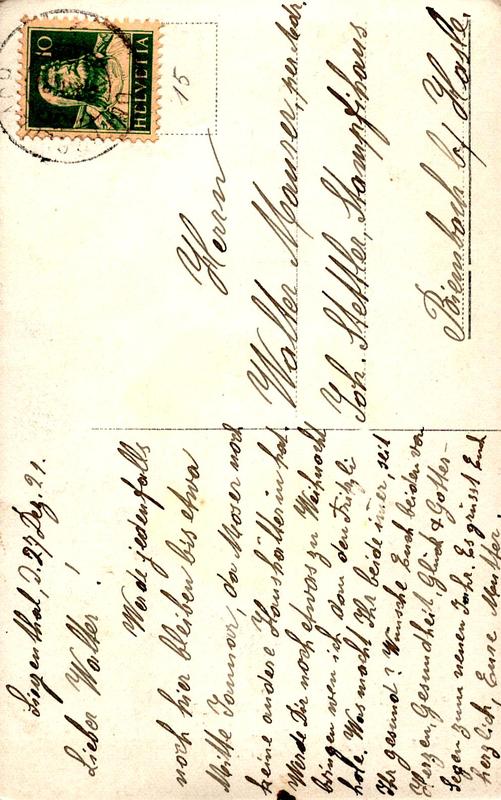 10
HELVETIA
15
Herrn
Walter Mauser, per Adr.
Joh. Stettler, Stampfihaus
Biembach b/ Hasle.
Langenthal, d. 27. Dez. 21.
Lieber Walter!
Werde jedenfalls
noch hier bleiben bis etwa
Mitte Januar, da Moser noch
keine andere Haushälterin hat.
Werde Dir noch etwas zu Weihnacht
bringen wen ich dann den Fritzli
hole. Was macht Ihr beide immer, seit
Ihr gesund? Wünsche Euch beiden von
Herzen, Gesundheit, Glück & Gottes-
segen zum neuen Jahr. Es grüsst Euch
herzlich, Eure Mutter.